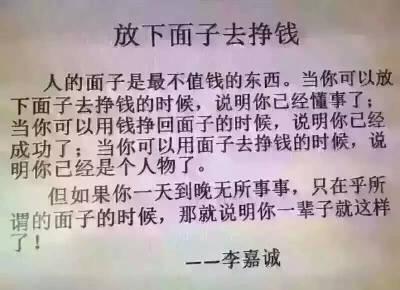 放下面子去挣钱
人的面子是最不值钱的东西。当你可以放
下面子去挣钱的时候，说明你已经懂事了；
当你可以用钱挣回面子的时候，说明你已经
成功了；当你可以用面子去挣钱的时候，说
明你已经是个人物了。
但如果你一天到晚无所事事，只在乎所
谓的面子的时候，那就说明你一辈子就这样
了！
——李嘉诚